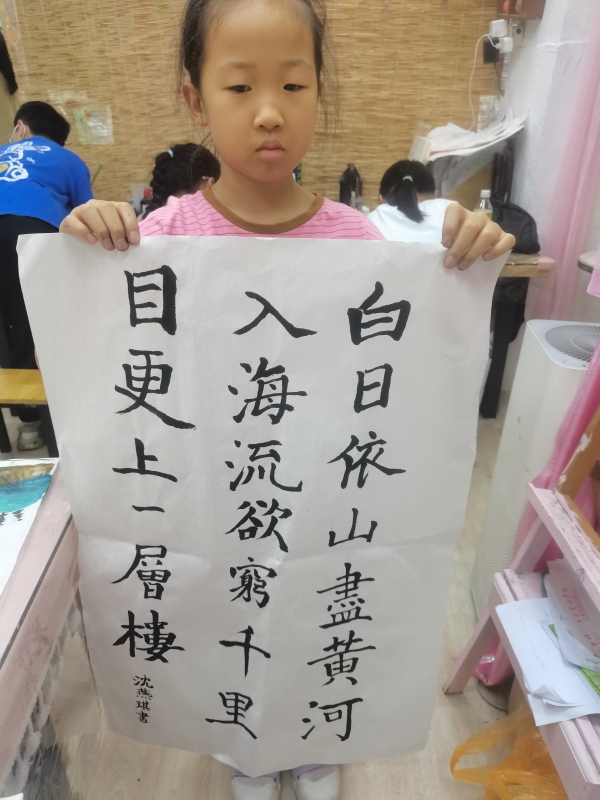 白日依山盡黄河
入海流欲窮千里
目更上一層樓
沈燕琪書